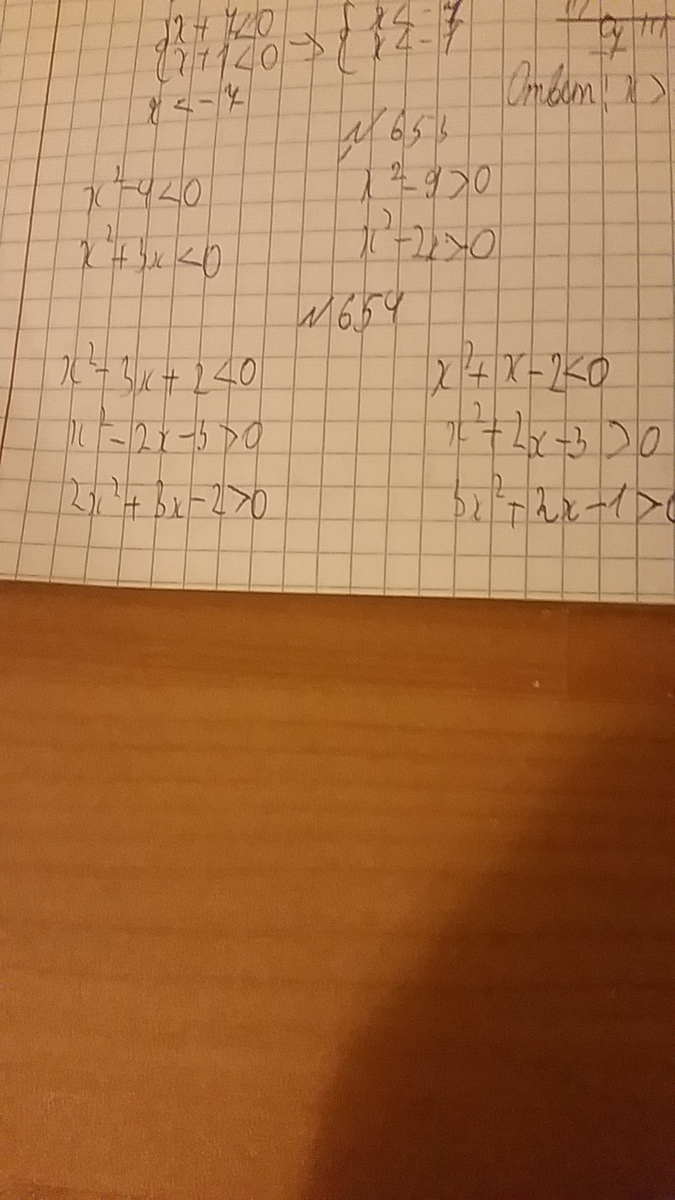 {x + 7 < 0
{x + 1 < 0 → { x < -7
x < -1
x < -7
Ответ: x >
N 653
x² - 4 < 0 x² - 9 > 0
x² + 3x < 0 x² - 2x > 0
N 654
x² + 3x + 2 < 0 x² + x - 2 < 0
x² - 2x - 3 > 0 x² + 2x - 3 > 0
2x² + 3x - 2 > 0 3x² + 2x - 1 > 0